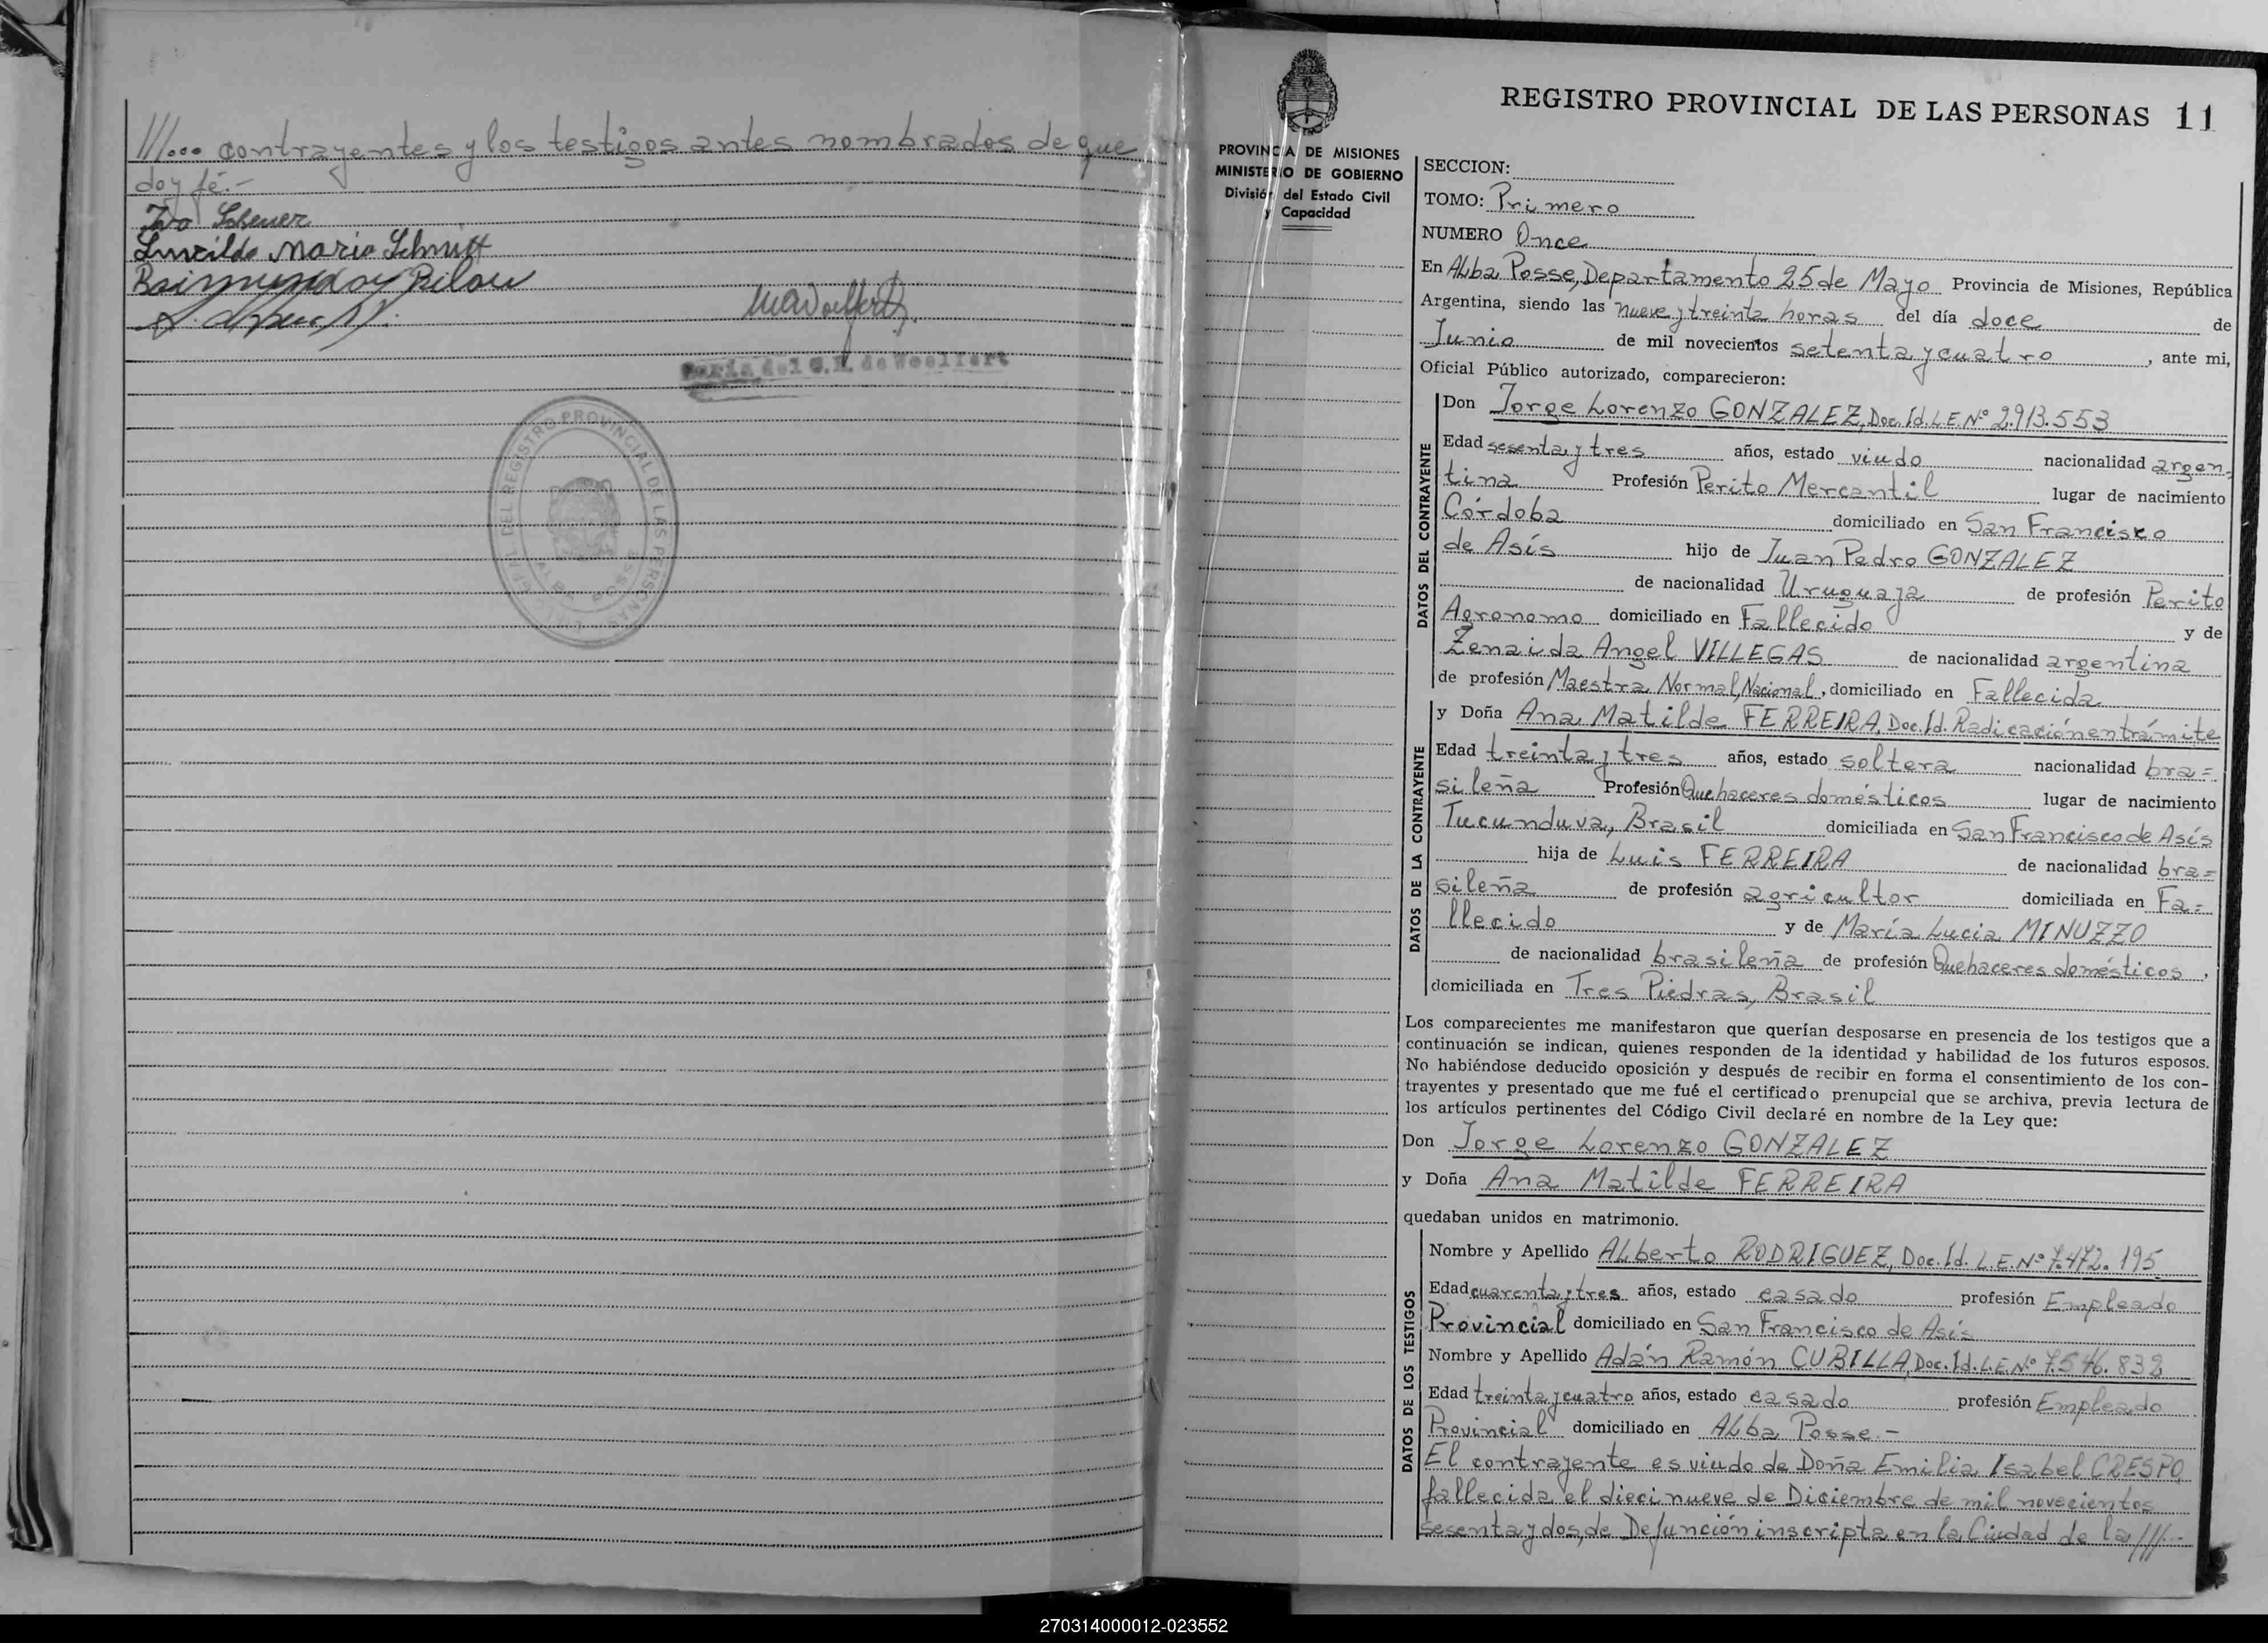 ///... contrayentes y los testigos antes nombrados de que
doy fé.-
Ivo Scheuer
Maria Schmitt
Raimundo
María del C. R. de Woelfert
REGISTRO PROVINCIAL DE LAS PERSONAS
ALBA POSSE
REGISTRO PROVINCIAL DE LAS PERSONAS 11
PROVINCIA DE MISIONES
MINISTERIO DE GOBIERNO
División del Estado Civil
y Capacidad
SECCION:
TOMO: Primero
NUMERO Once
En Alba Posse, Departamento 25 de Mayo Provincia de Misiones, República
Argentina, siendo las nueve y treinta horas del día doce de
Junio de mil novecientos setenta y cuatro, ante mi,
Oficial Público autorizado, comparecieron:
DATOS DEL CONTRAYENTE
Don Jorge Lorenzo GONZALEZ, Doc. Id. L.E. Nº 2.913.553
Edad sesenta y tres años, estado viudo nacionalidad argen=
tina Profesión Perito Mercantil lugar de nacimiento
Córdoba domiciliado en San Francisco
de Asís hijo de Juan Pedro GONZALEZ
de nacionalidad Uruguaya de profesión Perito
Agronomo domiciliado en Fallecido y de
Zenaida Angel VILLEGAS de nacionalidad argentina
de profesión Maestra Normal Nacional, domiciliado en Fallecida
DATOS DE LA CONTRAYENTE
y Doña Ana Matilde FERREIRA, Doc. Id. Radicación en trámite
Edad treinta y tres años, estado soltera nacionalidad bra=
sileña Profesión Quehaceres domésticos lugar de nacimiento
Tucunduva, Brasil domiciliada en San Francisco de Asís
hija de Luis FERREIRA de nacionalidad bra=
sileña de profesión agricultor domiciliada en Fa=
llecido y de María Lucia MINUZZO
de nacionalidad brasileña de profesión Quehaceres domésticos,
domiciliada en Tres Piedras, Brasil
Los comparecientes me manifestaron que querían desposarse en presencia de los testigos que a
continuación se indican, quienes responden de la identidad y habilidad de los futuros esposos.
No habiéndose deducido oposición y después de recibir en forma el consentimiento de los con-
trayentes y presentado que me fué el certificado prenupcial que se archiva, previa lectura de
los artículos pertinentes del Código Civil declaré en nombre de la Ley que:
Don Jorge Lorenzo GONZALEZ
y Doña Ana Matilde FERREIRA
quedaban unidos en matrimonio.
DATOS DE LOS TESTIGOS
Nombre y Apellido Alberto RODRIGUEZ, Doc. Id. L.E. Nº 7.472.195
Edad cuarenta y tres años, estado casado profesión Empleado
Provincial domiciliado en San Francisco de Asís
Nombre y Apellido Adán Ramón CUBILLA, Doc. Id. L.E. Nº 7.546.832
Edad treinta y cuatro años, estado casado profesión Empleado
Provincial domiciliado en Alba Posse.-
El contrayente es viudo de Doña Emilia Isabel CRESPO,
fallecida el diecinueve de Diciembre de mil novecientos
sesenta y dos, de Defunción inscripta en la Ciudad de la ///-
270314000012-023552